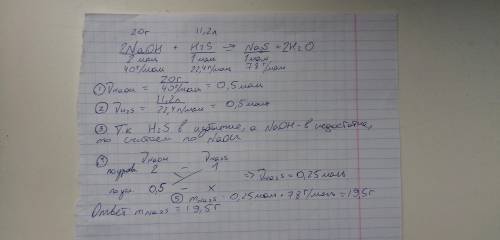 20г 11,2л
2NaOH + H₂S = Na₂S + 2H₂O
2 моль 1 моль 1 моль
40г/моль 22,4л/моль 78г/моль
① νNaOH = 20г / 40г/моль = 0,5 моль
② νH₂S = 11,2л / 22,4л/моль = 0,5 моль
③ Т.к H₂S в избытке, а NaOH - в недостатке,
то считаем по NaOH
④ νNaOH νNa₂S
по уров 2 - 1
по усл 0,5 - x
=> νNa₂S = 0,25 моль
⑤ mNa₂S = 0,25 моль · 78г/моль = 19,5г
Ответ: mNa₂S = 19,5г